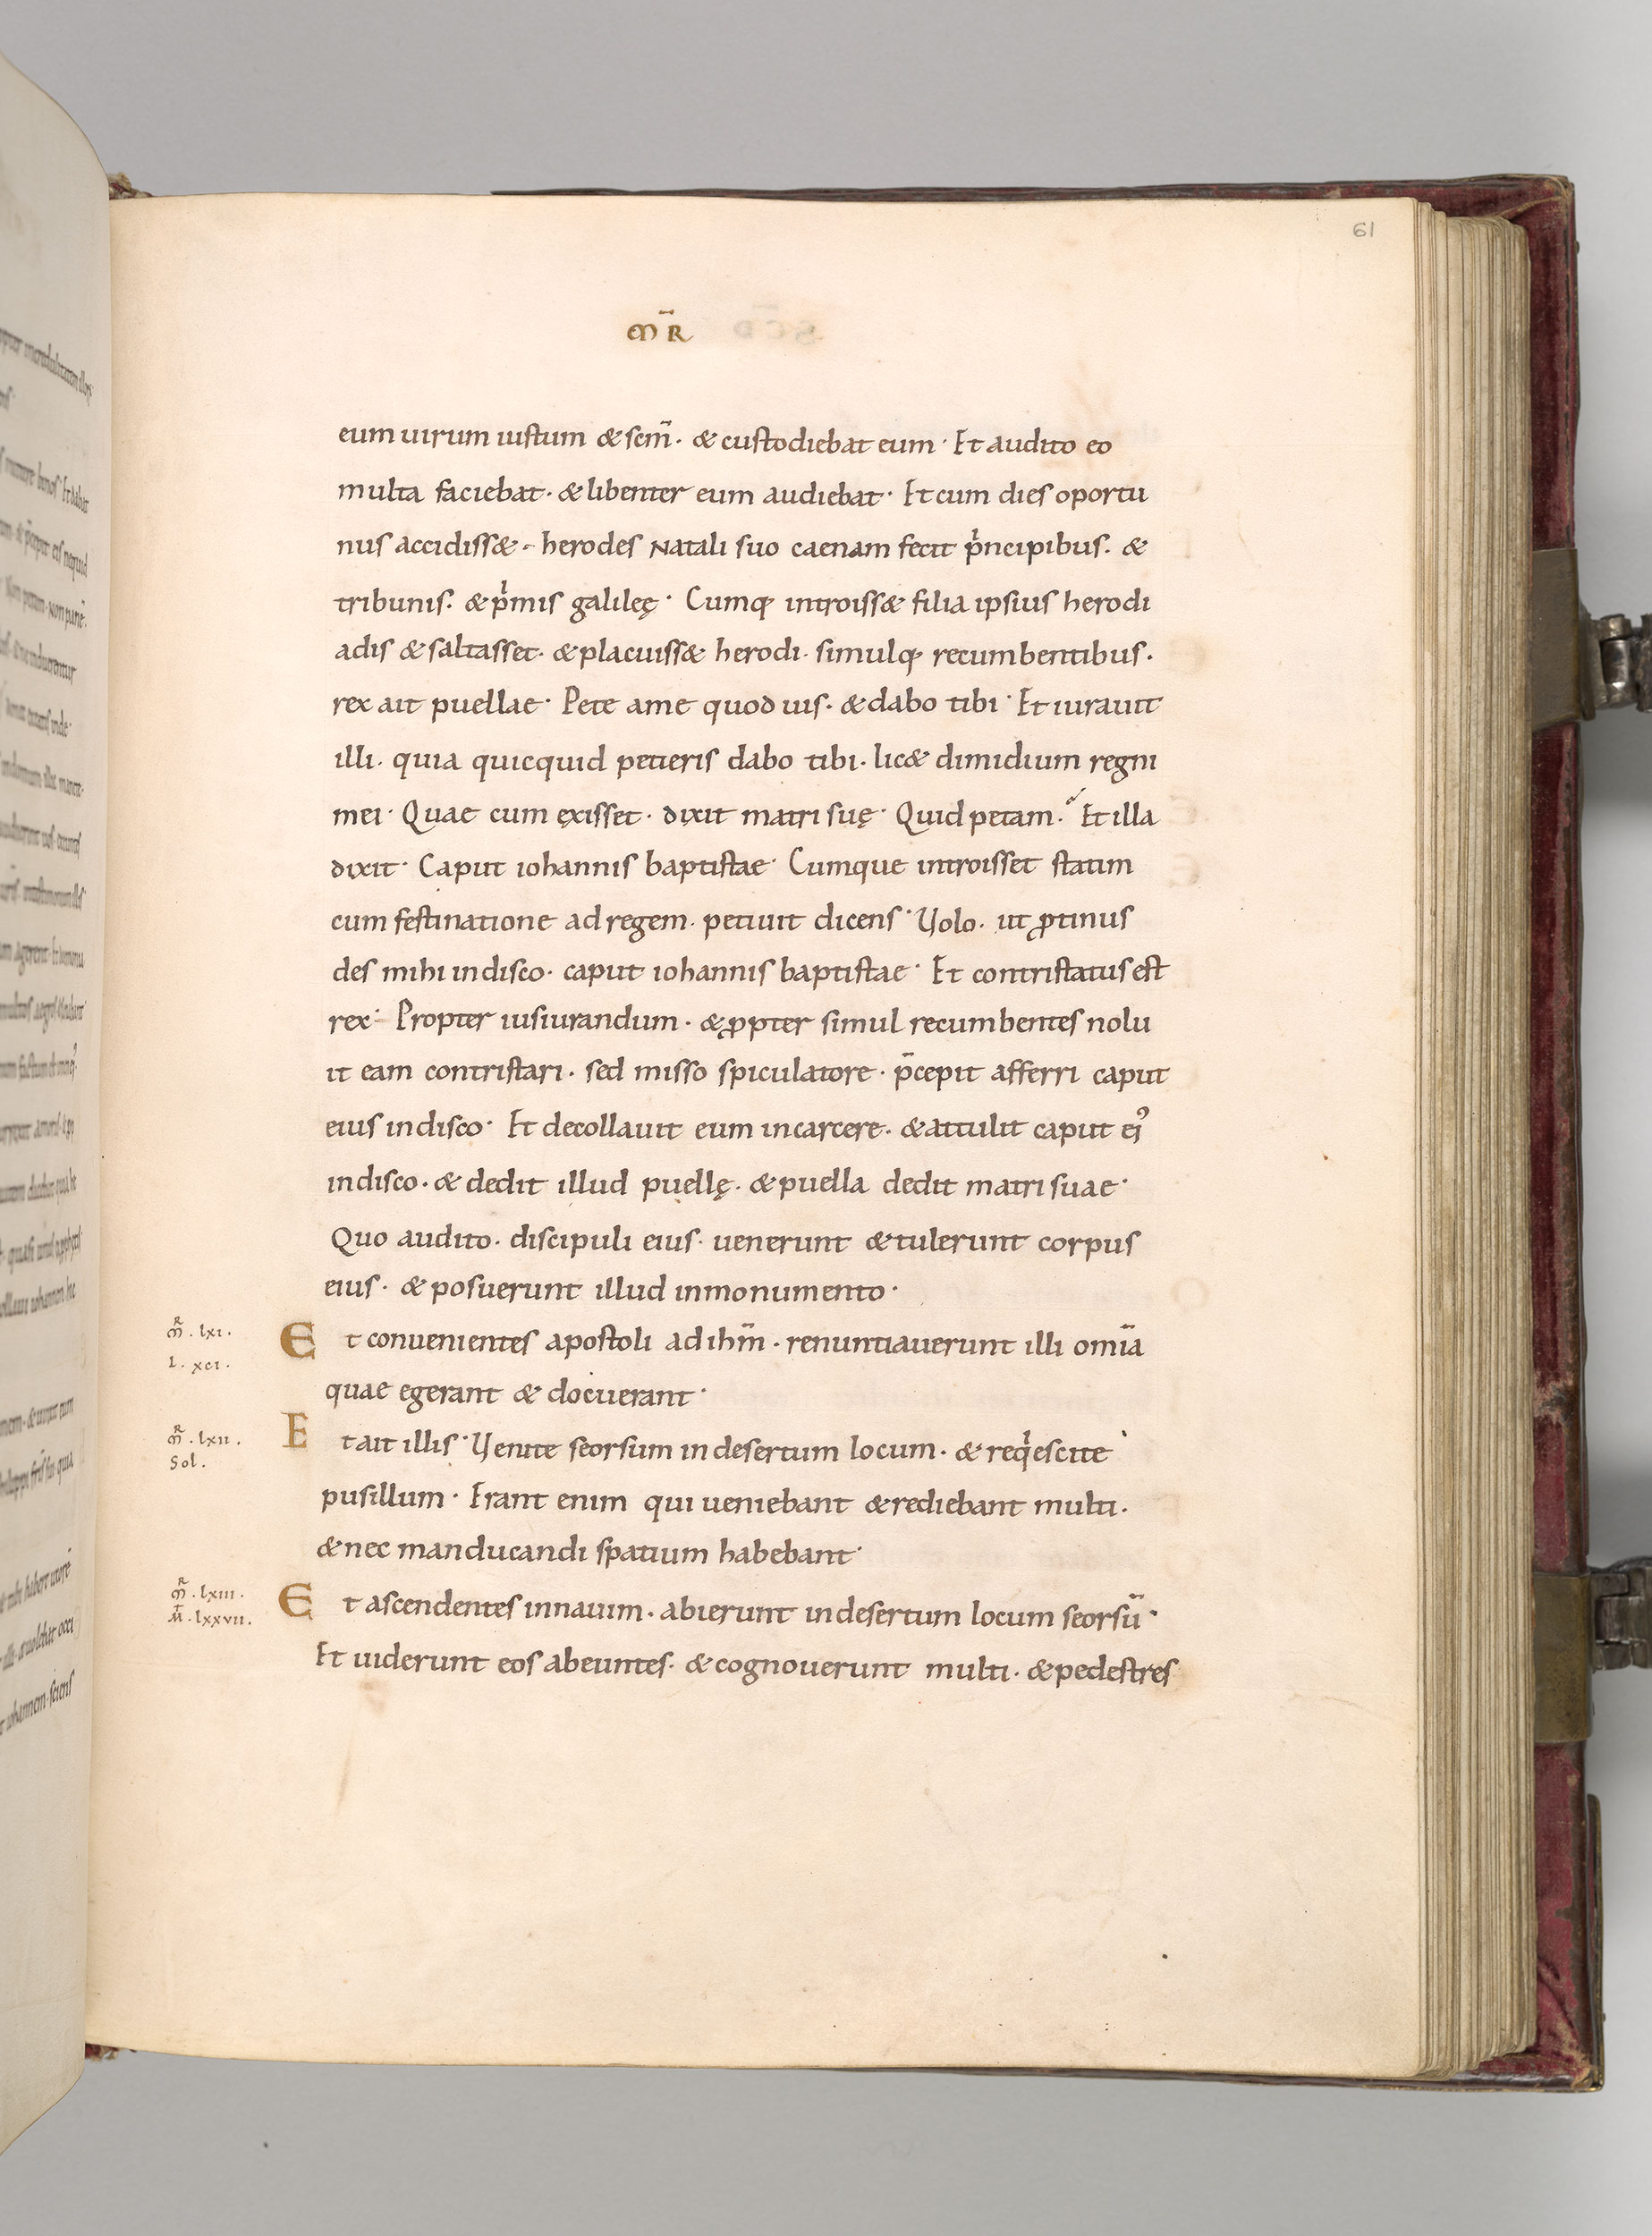 61
M̄R
eum uirum iustum & scm̄· & custodiebat eum· Et audito eo
multa faciebat· & libenter eum audiebat· Et cum dies oportu
nus accidiss&· herodes Natali suo caenam fecit pͥncipibus· &
tribunis· & pͥmis galileę· Cumq; introiss& filia ipsius herodi
adis & saltasset· & placuiss& herodi· simulq; recumbentibus·
rex ait puellae· Pete ame quod uis· & dabo tibi· Et iurauit
illi· quia quicquid petieris dabo tibi· lic& dimidium regni
mei· Quae cum exisset· dixit matri suę· Quid petam· Et illa
dixit· Caput iohannis baptistae· Cumque introisset statim
cum festinatione ad regem· petiuit dicens· Uolo· ut ꝓtinus
des mihi indisco· caput iohannis baptistae· Et contristatus est
rex· Propter iusiurandum· & ꝓpter simul recumbentes nolu
it eam contristari· sed misso spiculatore· p̄cepit afferri caput
eius indisco· Et decollauit eum incarcere· & attulit caput eiꝰ
indisco· & dedit illud puellę· & puella dedit matri suae·
Quo audito· discipuli eius· uenerunt & tulerunt corpus
eius· & posuerunt illud inmonumento·
M̄R · lxi·
L· xci·
Et conuenientes apostoli ad ihm̄· renuntiauerunt illi om̄ia
quae egerant & docuerant·
M̄R · lxii·
Sol·
Et ait illis· Uenite seorsum in desertum locum· & reqͥescite
pusillum· Erant enim qui ueniebant & rediebant multi·
& nec manducandi spatium habebant·
M̄R · lxiii·
M̄· lxxvii·
Et ascendentes innauim· abierunt indesertum locum seorsū·
Et uiderunt eos abeuntes· & cognouerunt multi· & pedestres